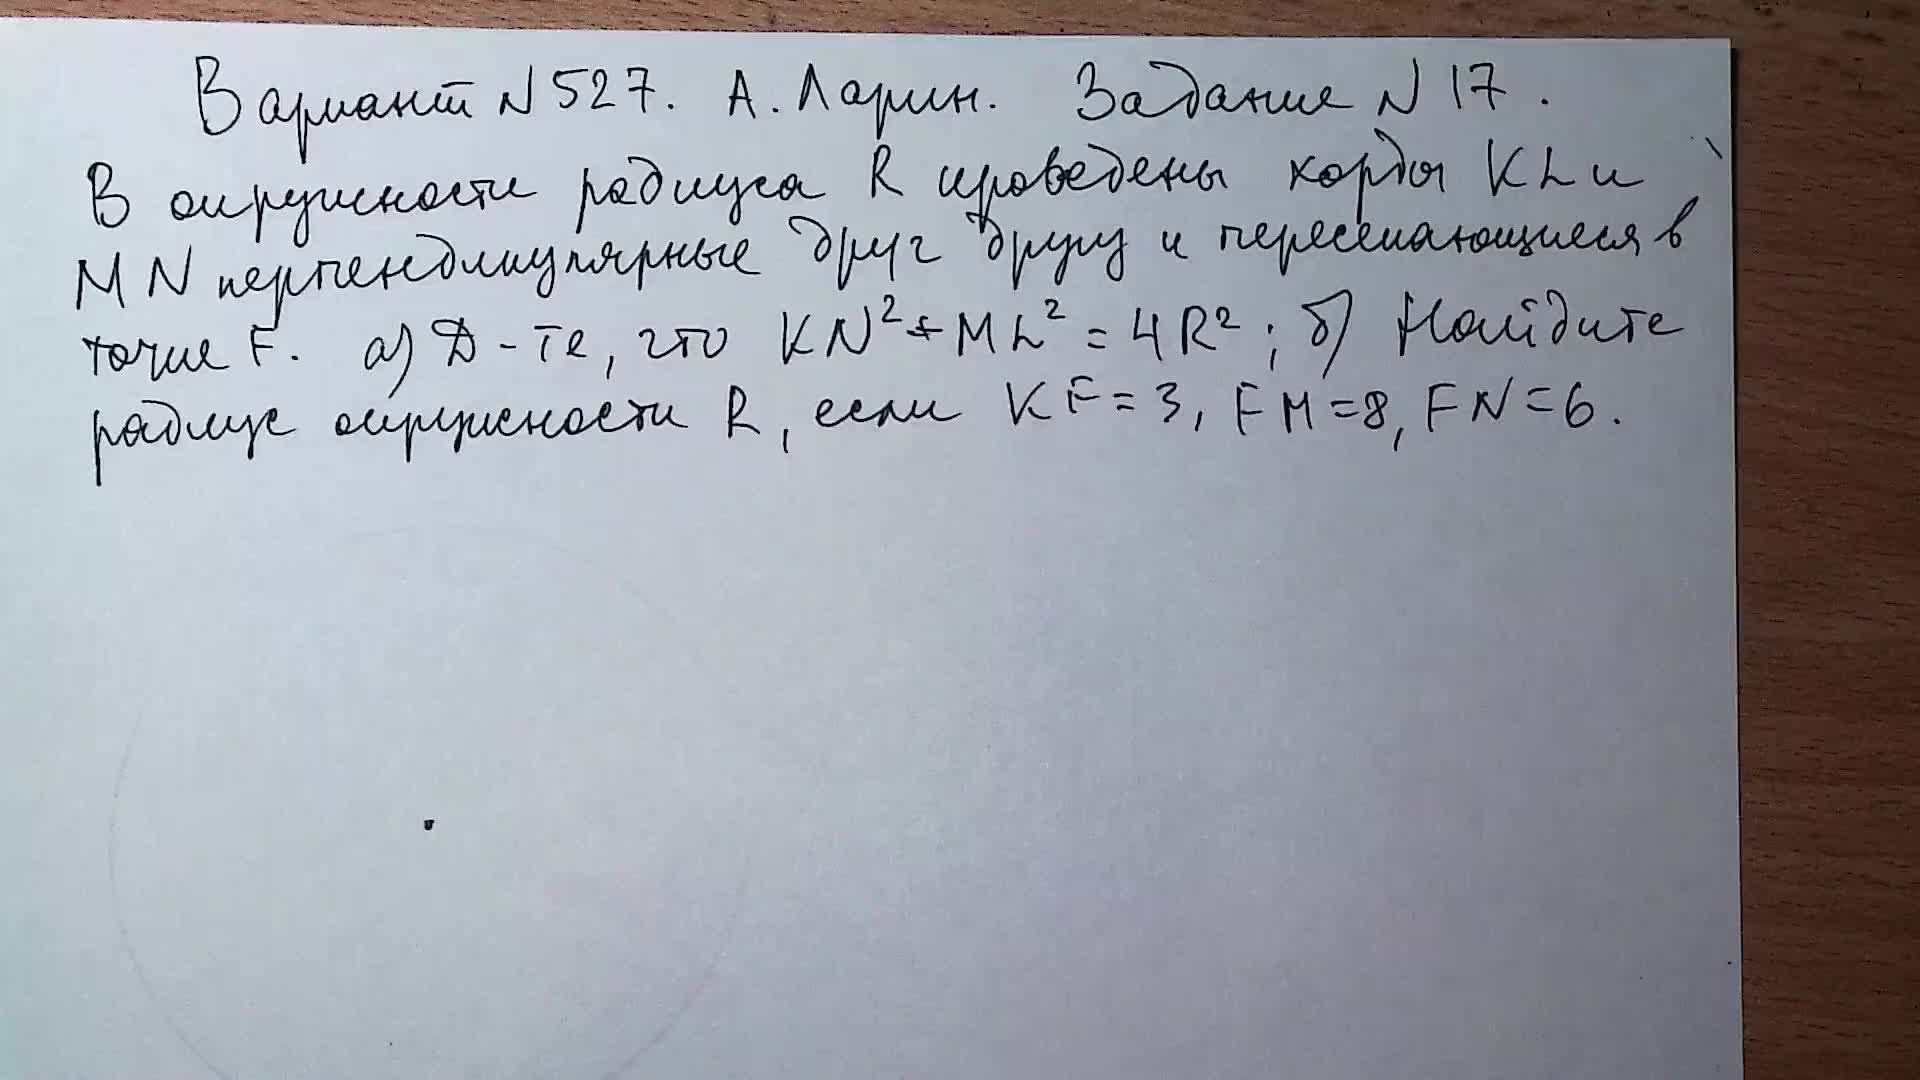 Вариант N 527. А. Ларин. Задание N 17.
В окружности радиуса R проведены хорды KL и
MN перпендикулярные друг другу и пересекающиеся в
точке F. а) Д-те, что KN² + ML² = 4R²; б) Найдите
радиус окружности R, если KF = 3, FM = 8, FN = 6.